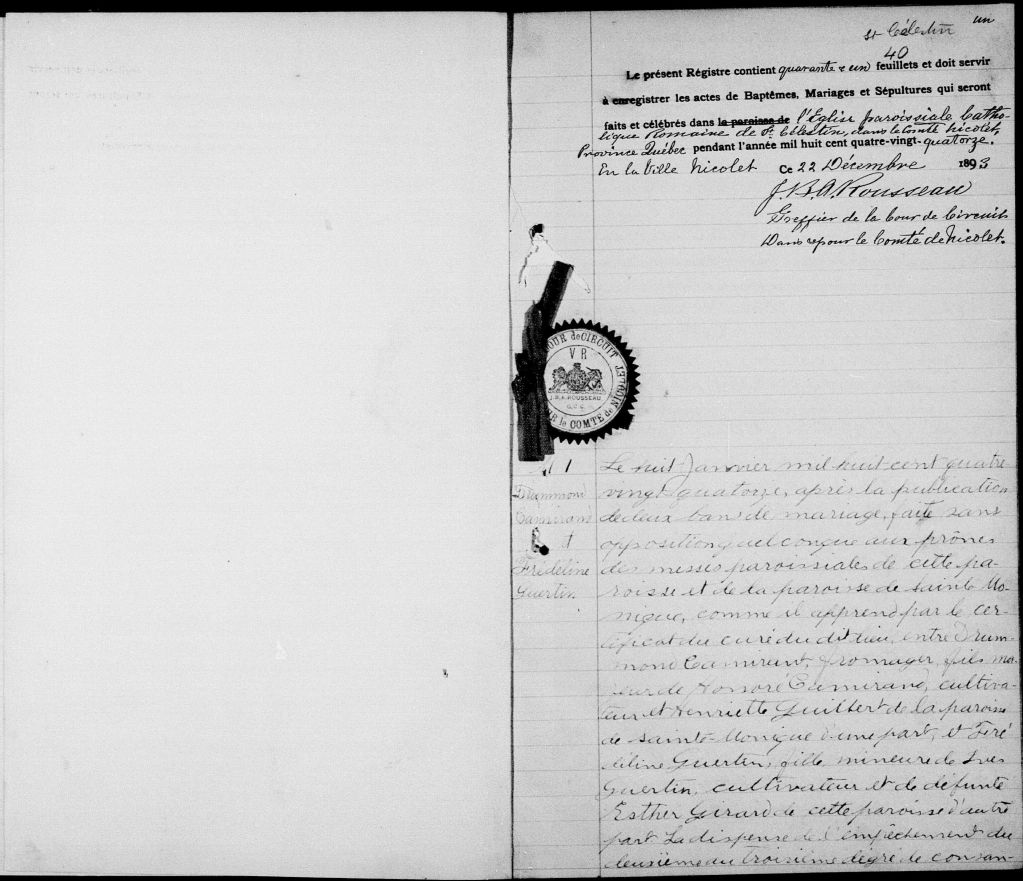 un
St Célestin
40
Le présent Régistre contient quarante & un feuillets et doit servir
à enregistrer les actes de Baptêmes, Mariages et Sépultures qui seront
faits et célébrés dans la paroisse de l'Eglise paroissiale Catho-
lique Romaine de St. Célestin, dans le Comté Nicolet,
Province Québec pendant l'année mil huit cent quatre-vingt-quatorze.
En la Ville Nicolet Ce 22 Décembre 1893
J. B. A. Rousseau
Greffier de la Cour de Circuit
Dans & pour le Comté de Nicolet.
COUR de CIRCUIT
VR
J. B. A. ROUSSEAU
G.C.C.
POUR le COMTE de NICOLET
1
Drummond
Camirand
&
Fridéline
Guertin
Le huit Janvier mil huit cent quatre
vingt quatorze, après la publication
de deux bans de mariage, faite sans
opposition quelconque aux prônes
des messes paroissiales de cette pa-
roisse et de la paroisse de Sainte Mo-
nique, comme il apprend par le cer-
tificat du curé du dit lieu, entre Drum-
mond Camirand, fromager, fils ma-
jeur de Honoré Camirand, cultiva-
teur et Henriette Guilbert de la paroisse
de Sainte-Monique d'une part, et Fré
déline Guertin, fille mineure de Ives
Guertin, cultivateur et de défunte
Esther Girard de cette paroisse d'autre
part. La dispense de l'empêchement du
deuxième au troisième dégré de consan-